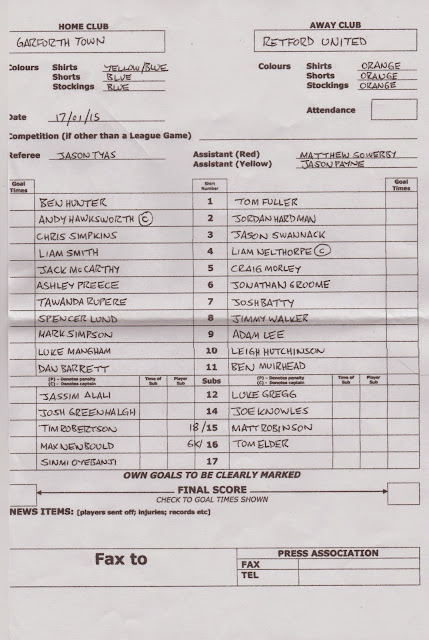 HOME CLUB AWAY CLUB
GARFORTH TOWN RETFORD UNITED
Colours Shirts YELLOW/BLUE Colours Shirts ORANGE
Shorts BLUE Shorts ORANGE
Stockings BLUE Stockings ORANGE
Date 17/01/15 Attendance
Competition (if other than a League Game)
Referee JASON TYAS Assistant (Red) MATTHEW SOWERBY
Assistant (Yellow) JASON PAYNE
Goal Times Shirt Number Goal Times
BEN HUNTER 1 TOM FULLER
ANDY HAWKSWORTH (C) 2 JORDAN HARDMAN
CHRIS SIMPKINS 3 JASON SWANNACK
LIAM SMITH 4 LIAM NELTHORPE (C)
JACK McCARTHY 5 CRAIG MORLEY
ASHLEY PREECE 6 JONATHAN GROOME
TAWANDA RUPERE 7 JOSH BATTY
SPENCER LUND 8 JIMMY WALKER
MARK SIMPSON 9 ADAM LEE
LUKE MANGHAM 10 LEIGH HUTCHINSON
DAN BARRETT 11 BEN MUIRHEAD
(P) - Denotes penalty (C) - Denotes captain Time of Sub Player Sub Subs (P) - Denotes penalty (C) - Denotes captain Time of Sub Player Sub
JASSIM ALALI 12 LUKE GREGG
JOSH GREENHALGH 14 JOE KNOWLES
TIM ROBERTSON 18/15 MATT ROBINSON
MAX NEWBOULD GK/16 TOM ELDER
SINMI OYEBANJI 17
OWN GOALS TO BE CLEARLY MARKED
FINAL SCORE
CHECK TO GOAL TIMES SHOWN
NEWS ITEMS: [players sent off; injuries; records etc]
Fax to PRESS ASSOCIATION
FAX
TEL